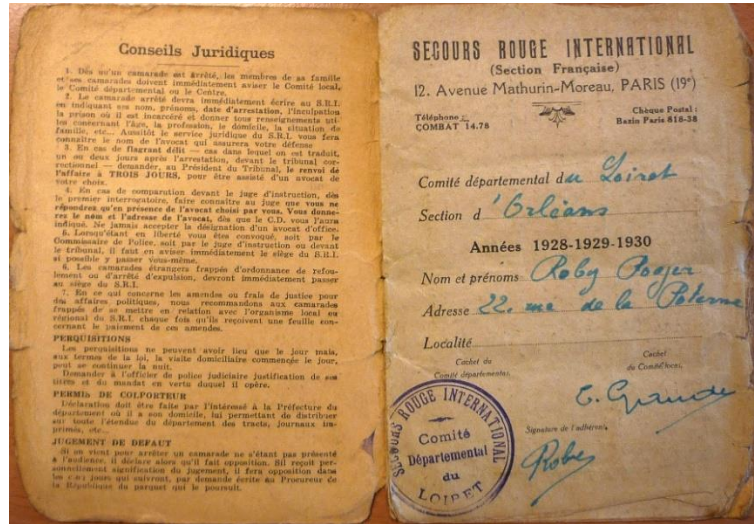 Conseils Juridiques
1. Dès qu'un camarade est arrêté, les membres de sa famille
et ses camarades doivent immédiatement aviser le Comité local,
le Comité départemental ou le Centre.
2. Le camarade arrêté devra immédiatement écrire au S.R.I.
en indiquant ses nom, prénoms, date d'arrestation, l'inculpation
la prison où il est incarcéré et donner tous renseignements uti-
les concernant l'âge, la profession, le domicile, la situation de
famille, etc... Aussitôt le service juridique du S.R.I. vous fera
connaître le nom de l'avocat qui assurera votre défense
3. En cas de flagrant délit — cas dans lequel on est traduit,
un ou deux jours après l'arrestation, devant le tribunal cor-
rectionnel — demander, au Président du Tribunal, le renvoi de
l'affaire à TROIS JOURS, pour être assisté d'un avocat de
votre choix.
4. En cas de comparution devant le juge d'instruction, dès
le premier interrogatoire, faire connaître au juge que vous ne
répondrez qu'en présence de l'avocat choisi par vous. Vous donne-
rez le nom et l'adresse de l'avocat, dès que le C.D. vous l'aura
indiqué. Ne jamais accepter la désignation d'un avocat d'office.
5. Lorsqu'étant en liberté vous êtes convoqué, soit par le
Commissaire de Police, soit par le juge d'instruction ou devant
le tribunal, il faut en aviser immédiatement le siège du S.R.I.
si possible y passer vous-même.
6. Les camarades étrangers frappés d'ordonnance de refou-
lement ou d'arrêté d'expulsion, devront immédiatement passer
au siège du S.R.I.
7. En ce qui concerne les amendes ou frais de justice pour
des affaires politiques, nous recommandons aux camarades
frappés de se mettre en relation avec l'organisme local ou
régional du S.R.I. chaque fois qu'ils reçoivent une feuille con-
cernant le paiement de ces amendes.
PERQUISITIONS
Les perquisitions ne peuvent avoir lieu que le jour mais,
aux termes de la loi, la visite domiciliaire commencée le jour,
peut se continuer la nuit.
Demander à l'officier de police judiciaire justification de ses
titres et du mandat en vertu duquel il opère.
PERMIS DE COLPORTEUR
Déclaration doit être faite par l'intéressé à la Préfecture du
département où il a son domicile, lui permettant de distribuer
sur toute l'étendue du département des tracts, journaux im-
primés, etc...
JUGEMENT DE DEFAUT
Si on vient pour arrêter un camarade ne s'étant pas présenté
à l'audience, il déclare alors qu'il fait opposition. S'il reçoit per-
sonnellement signification du jugement, il fera opposition dans
les jours qui suivront, par demande écrite au Procureur de
la République du parquet qui le poursuit.
SECOURS ROUGE INTERNATIONAL
(Section Française)
12. Avenue Mathurin-Moreau, PARIS (19e)
Téléphone :
COMBAT 14.78
Chèque Postal :
Bazin Paris 818-38
Comité départemental du Loiret
Section d'Orléans
Années 1928-1929-1930
Nom et prénoms Roby Roger
Adresse 22. rue de la Poterne
Localité
Cachet du
Comité départemental,
Cachet
du Comité local,
Signature de l'adhérent,
Roby
SECOURS ROUGE INTERNATIONAL
Comité
Départemental
du
LOIRET